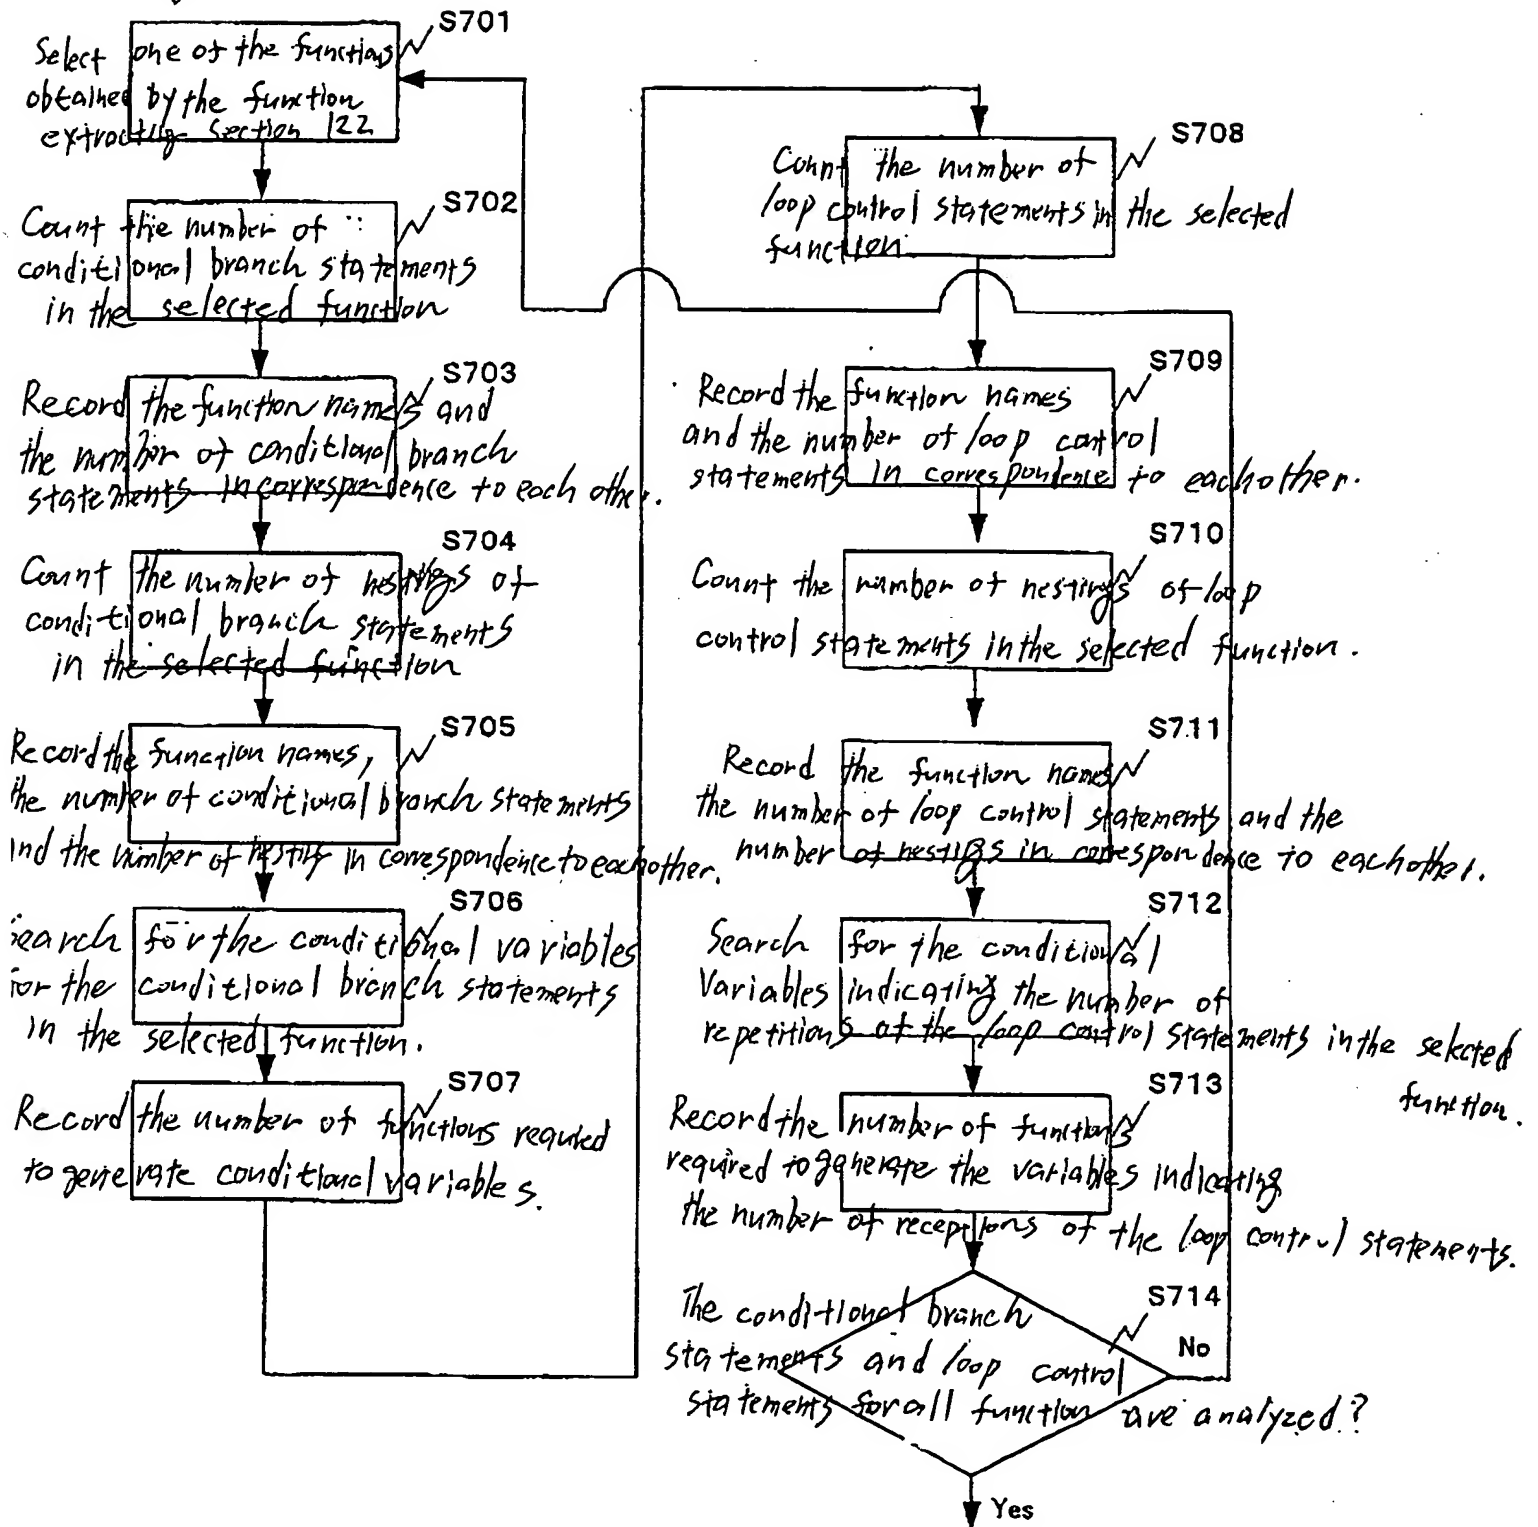 S701
Select one of the functions
obtained by the function
extracting section 122
S702
Count the number of
conditional branch statements
in the selected function
S703
Record the function names and
the number of conditional branch
statements in correspondence to each other.
S704
Count the number of nestings of
conditional branch statements
in the selected function
S705
Record the function names,
the number of conditional branch statements
and the number of nesting in correspondence to each other.
S706
Search for the conditional variables
for the conditional branch statements
in the selected function.
S707
Record the number of functions required
to generate conditional variables.
S708
Count the number of
loop control statements in the selected
function
S709
Record the function names
and the number of loop control
statements in correspondence to each other.
S710
Count the number of nestings of loop
control statements in the selected function.
S711
Record the function names
the number of loop control statements and the
number of nestings in correspondence to each other.
S712
Search for the conditional
Variables indicating the number of
repetitions of the loop control statements in the selected
function.
S713
Record the number of functions
required to generate the variables indicating
the number of receptions of the loop control statements.
S714
The conditional branch
statements and loop control
statements for all function are analyzed?
No
Yes